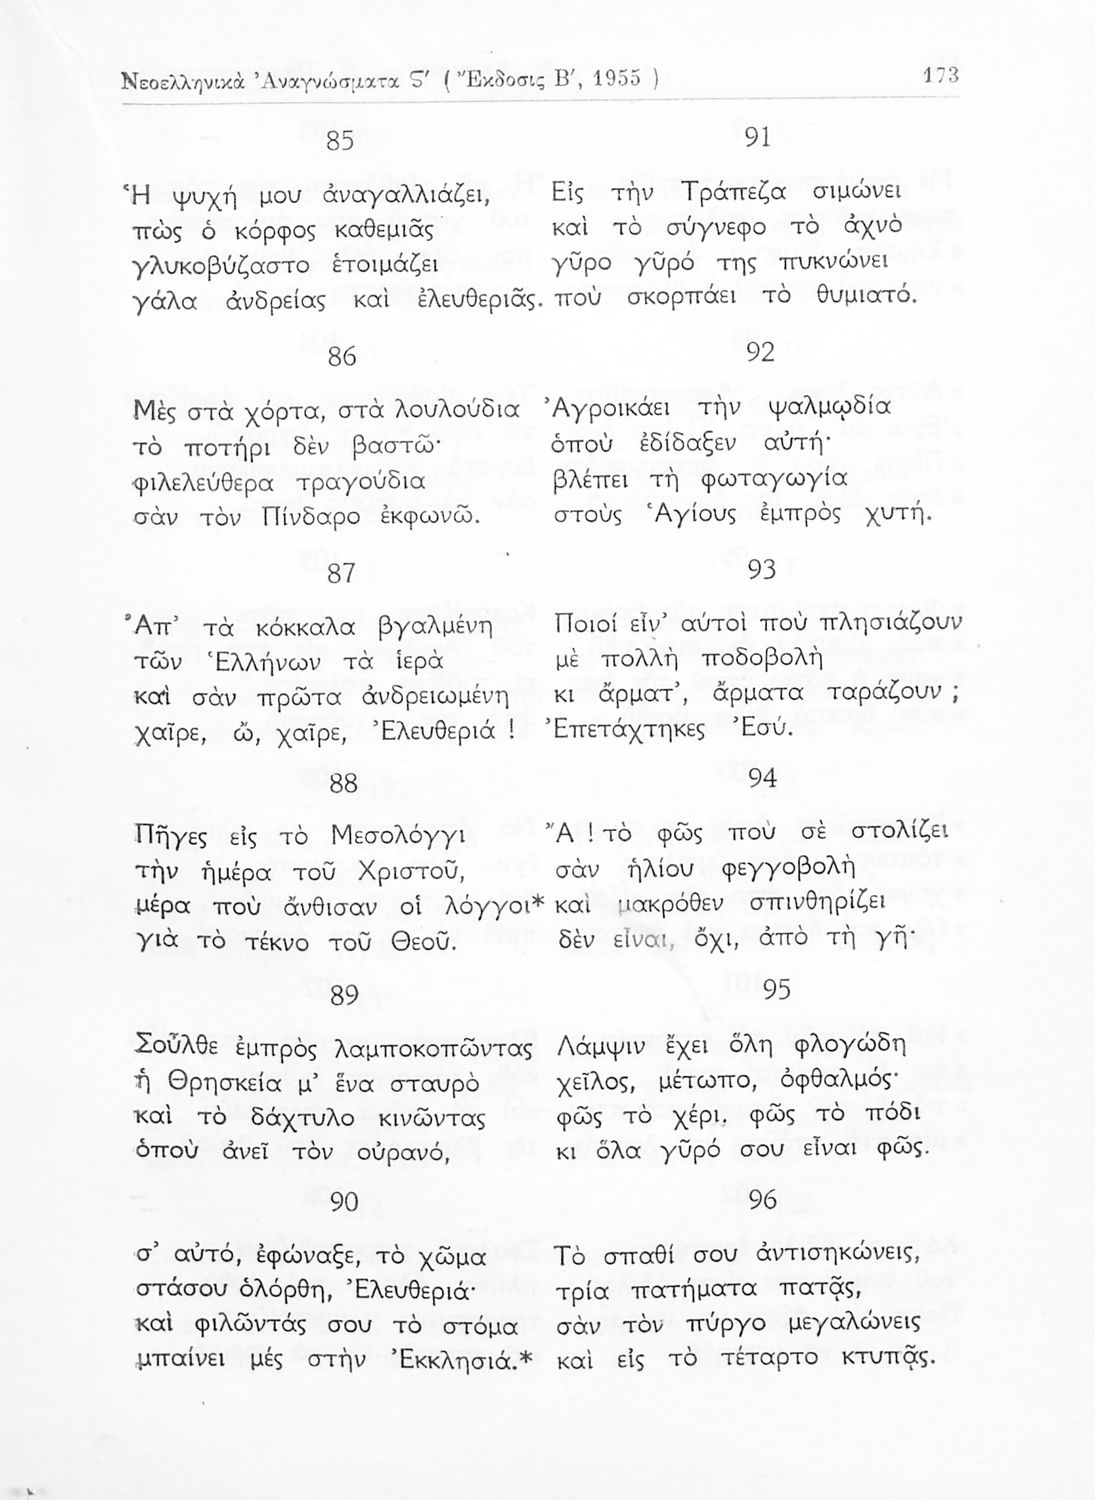 Νεοελληνικὰ Ἀναγνώσματα Ϛ′ ( Ἔκδοσις Β′, 1955 )
173
85
Ἡ ψυχή μου ἀναγαλλιάζει,
πὼς ὁ κόρφος καθεμιᾶς
γλυκοβύζαστο ἑτοιμάζει
γάλα ἀνδρείας καὶ ἐλευθεριᾶς.
86
Μὲς στὰ χόρτα, στὰ λουλούδια
τὸ ποτήρι δὲν βαστῶ·
φιλελεύθερα τραγούδια
σὰν τὸν Πίνδαρο ἐκφωνῶ.
87
Ἀπ’ τὰ κόκκαλα βγαλμένη
τῶν Ἑλλήνων τὰ ἱερὰ
καὶ σὰν πρῶτα ἀνδρειωμένη
χαῖρε, ὤ, χαῖρε, Ἐλευθεριά !
88
Πῆγες εἰς τὸ Μεσολόγγι
τὴν ἡμέρα τοῦ Χριστοῦ,
μέρα ποὺ ἄνθισαν οἱ λόγγοι*
γιὰ τὸ τέκνο τοῦ Θεοῦ.
89
Σοὖλθε ἐμπρὸς λαμποκοπῶντας
ἡ Θρησκεία μ’ ἕνα σταυρὸ
καὶ τὸ δάχτυλο κινῶντας
ὁποὺ ἀνεῖ τὸν οὐρανό,
90
σ’ αὐτό, ἐφώναξε, τὸ χῶμα
στάσου ὁλόρθη, Ἐλευθεριά·
καὶ φιλῶντάς σου τὸ στόμα
μπαίνει μές στὴν Ἐκκλησιά.*
91
Εἰς τὴν Τράπεζα σιμώνει
καὶ τὸ σύγνεφο τὸ ἀχνὸ
γῦρο γῦρό της πυκνώνει
ποὺ σκορπάει τὸ θυμιατό.
92
Ἀγροικάει τὴν ψαλμῳδία
ὁποὺ ἐδίδαξεν αὐτή·
βλέπει τὴ φωταγωγία
στοὺς Ἁγίους ἐμπρὸς χυτή.
93
Ποιοί εἶν’ αὐτοὶ ποὺ πλησιάζουν
μὲ πολλὴ ποδοβολὴ
κι ἄρματ’, ἄρματα ταράζουν ;
Ἐπετάχτηκες Ἐσύ.
94
Ἄ ! τὸ φῶς ποὺ σὲ στολίζει
σὰν ἡλίου φεγγοβολὴ
καὶ μακρόθεν σπινθηρίζει
δὲν εἶναι, ὄχι, ἀπὸ τὴ γῆ·
95
Λάμψιν ἔχει ὅλη φλογώδη
χεῖλος, μέτωπο, ὀφθαλμός·
φῶς τὸ χέρι, φῶς τὸ πόδι
κι ὅλα γῦρό σου εἶναι φῶς.
96
Τὸ σπαθί σου ἀντισηκώνεις,
τρία πατήματα πατᾷς,
σὰν τὸν πύργο μεγαλώνεις
καὶ εἰς τὸ τέταρτο κτυπᾷς.